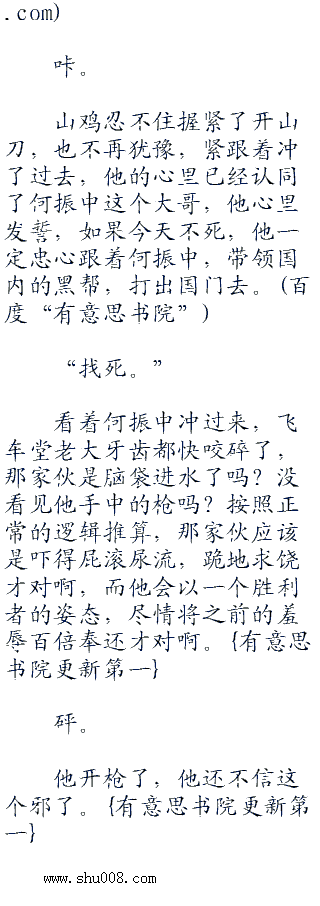 .com)
咔。
山鸡忍不住握紧了开山
刀，也不再犹豫，紧跟着冲
了过去，他的心里已经认同
了何振中这个大哥，他心里
发誓，如果今天不死，他一
定忠心跟着何振中，带领国
内的黑帮，打出国门去。(百
度“有意思书院”)
“找死。”
看着何振中冲过来，飞
车堂老大牙齿都快咬碎了，
那家伙是脑袋进水了吗？没
看见他手中的枪吗？按照正
常的逻辑推算，那家伙应该
是吓得屁滚尿流，跪地求饶
才对啊，而他会以一个胜利
者的姿态，尽情将之前的羞
辱百倍奉还才对啊。{有意思
书院更新第一}
砰。
他开枪了，他还不信这
个邪了。{有意思书院更新第
一}
www.shu008.com